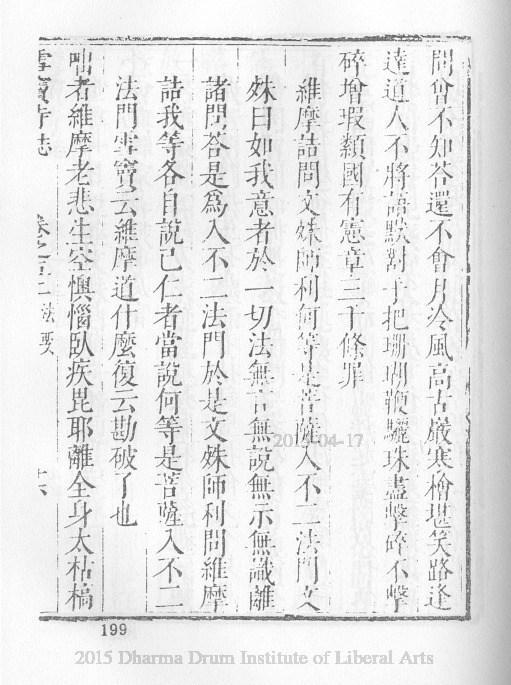 問曾不知荅還不會月冷風高古巖寒檜堪笑路逢
達道人不將語默對手把珊瑚鞭驪珠盡擊碎不擊
碎增瑕纇國有憲章三千條罪
維摩詰問文殊師利何等是菩薩入不二法門文
殊曰如我意者於一切法無言無說無示無識離
諸問荅是為入不二法門於是文殊師利問維摩
詰我等各自說已仁者當說何等是菩薩入不二
法門雪竇云維摩道什麼復云勘破了也
咄者維摩老悲生空懊惱臥疾毘耶離全身太枯槁
雪竇寺誌
卷之 法要
十六
2015-04-17
199
2015 Dharma Drum Institute of Liberal Arts